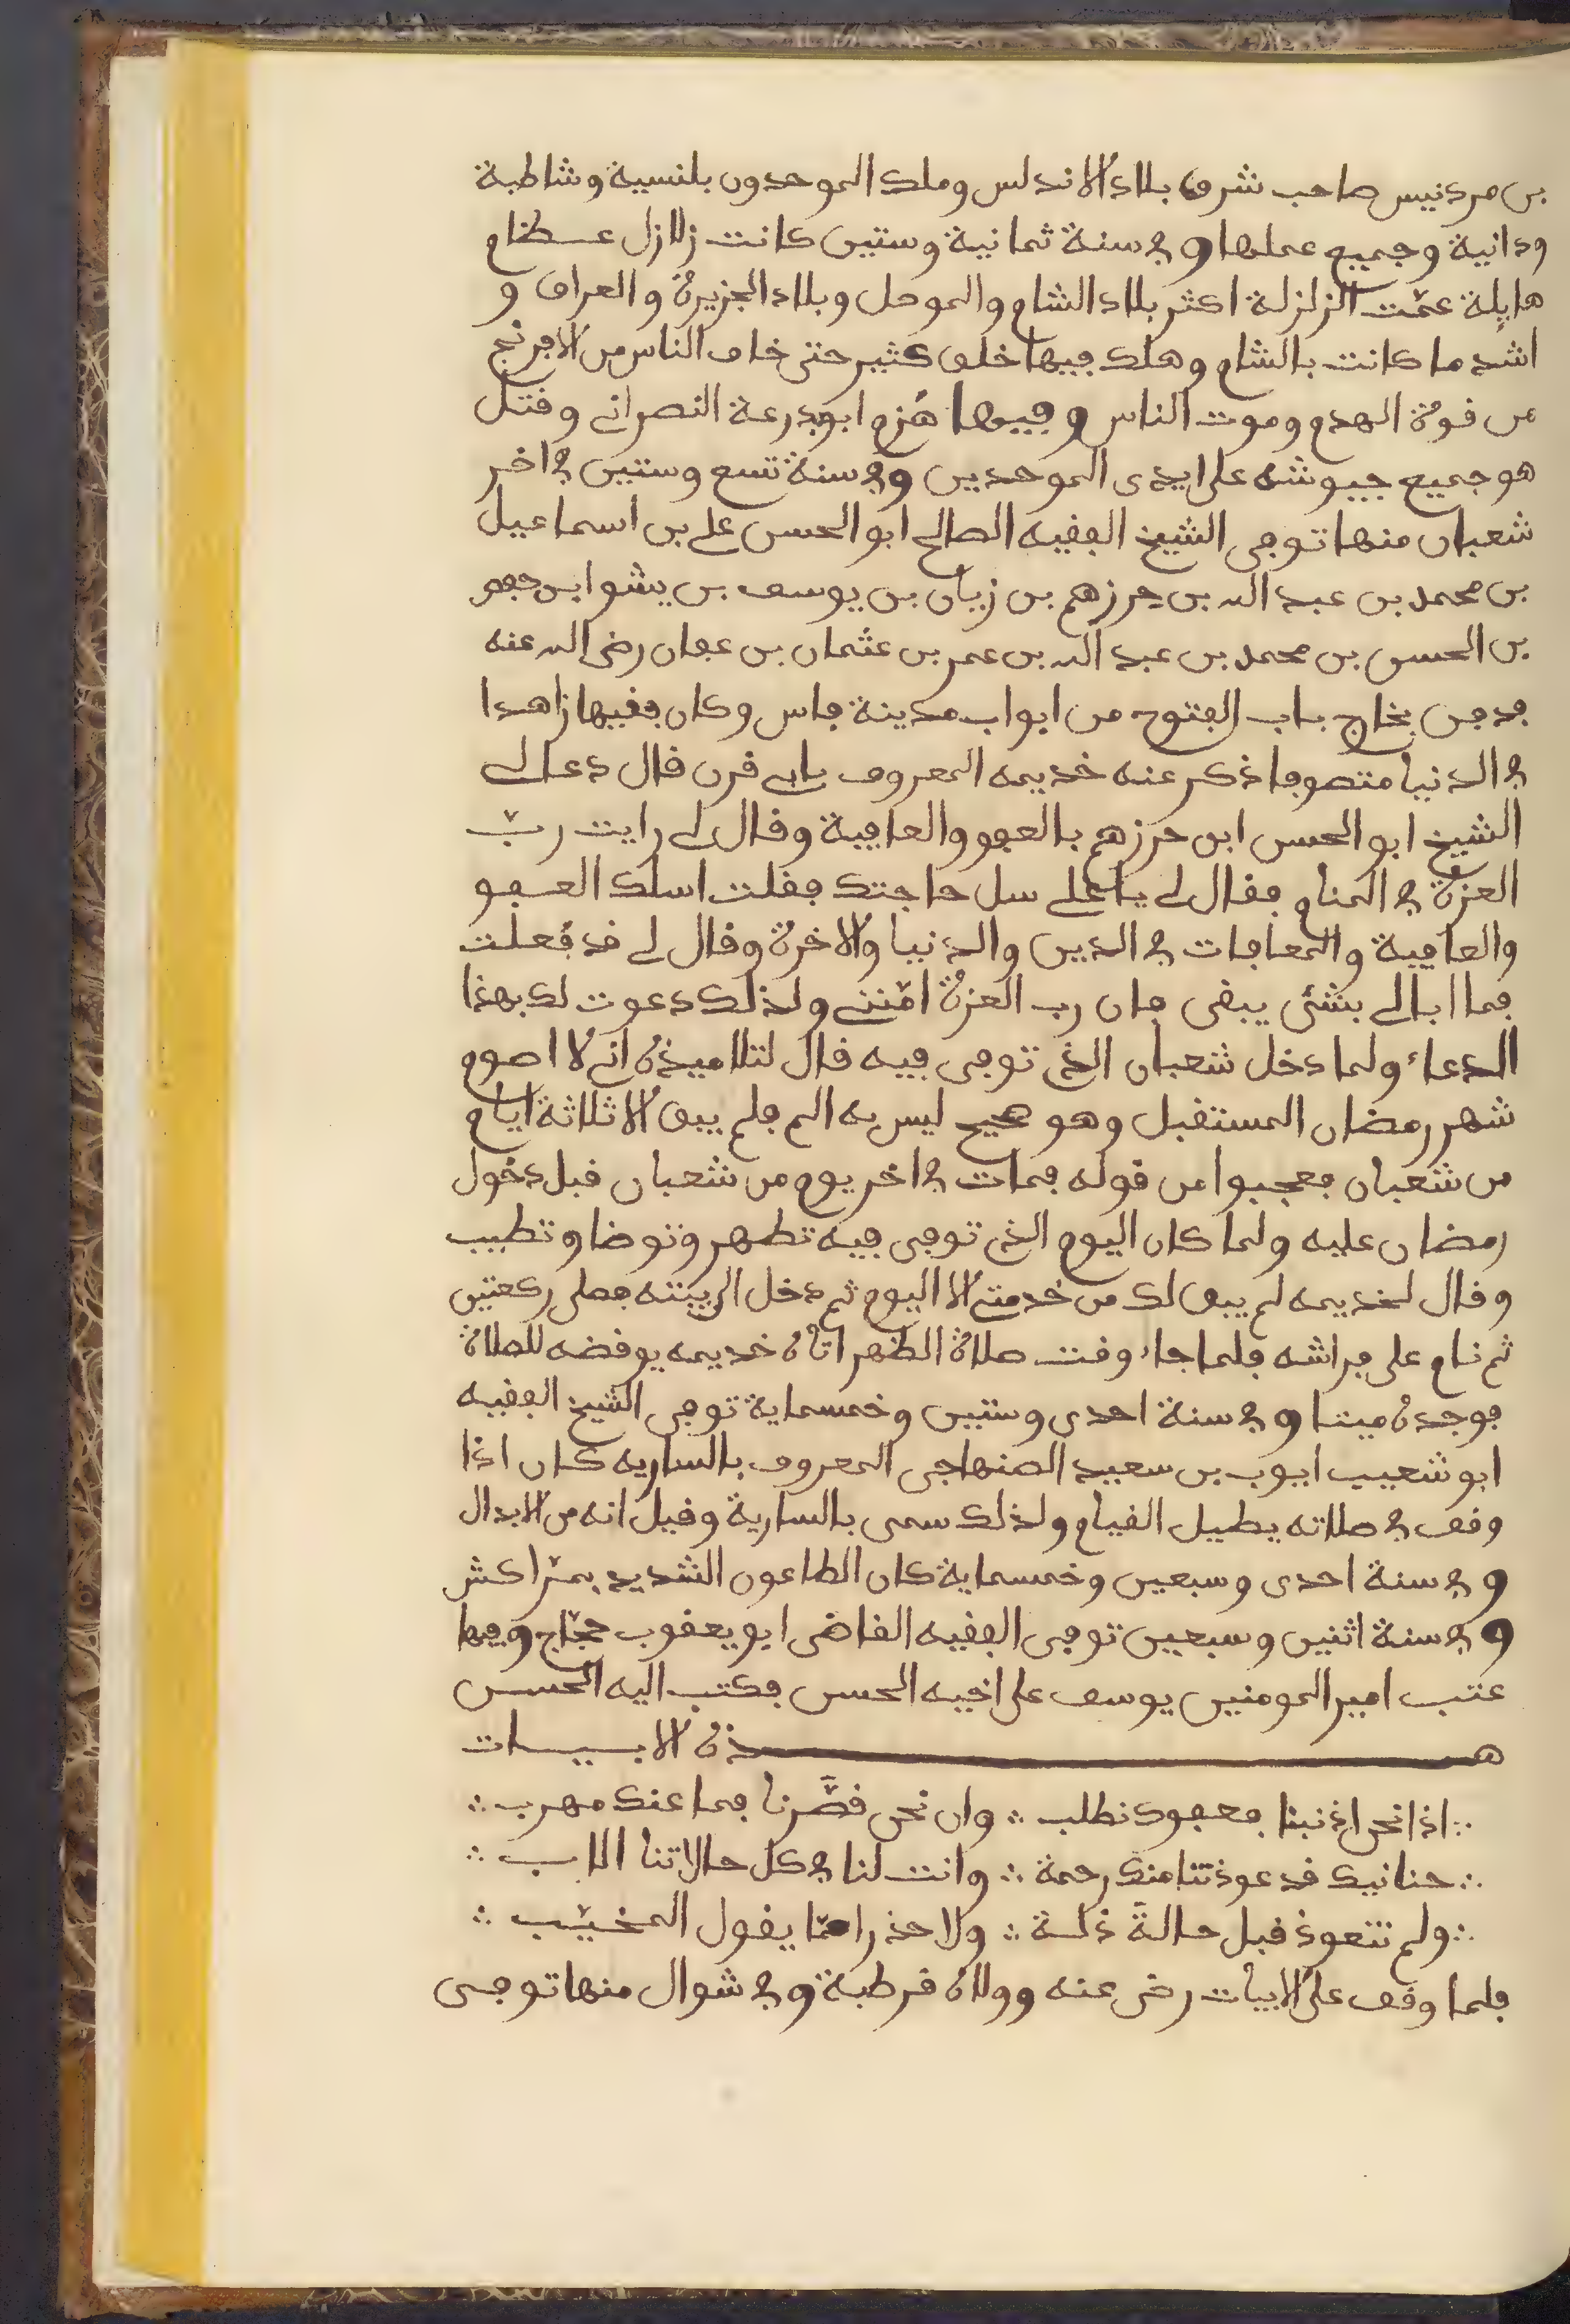 بن مردنيس صاحب شرق بلاد الاندلس وملك الموحدون بلنسية وشاطبة
ودانية وجميع عملها وفي سنة ثمانية وستين كانت زلازل عظام
هايلة عمّت الزلزلة اكثر بلاد الشام والموصل وبلاد الجزيرة والعراق و
اشد ما كانت بالشام وهلك فيها خلق كثير حتى خاف الناس من الافرنج
من قوة الهدم وموت الناس وفيها هُزم ابوبدرعة النصراني وقتل
هو جميع جيوشه على ايدى الموحدين وفي سنة تسع وستين في اخر
شعبان منها توفى الشيخ الفقيه الصالح ابو الحسن علي بن اسماعيل
بن محمد بن عبد الله بن حرزهم بن زيان بن يوسف بن يشو ابن جعفر
بن الحسن بن محمد بن عبد الله بن عمر بن عثمان بن عفان رضى الله عنه
فدفن بخاج باب الفتوح من ابواب مدينة فاس وكان فقيها زاهدا
في الدنيا متصوفا ذكر عنه خديمه المعروف بابي قرن قال دعا لي
الشيخ ابو الحسن ابن حرزهم بالعفو والعافية وقال لي رايت ربّ
العزة في المنام فقال لي يا علي سل حاجتك فقلت اسلك العفو
والعافية والمعافات في الدين والدنيا والاخرة وقال لي قد فعلت
فما ابالي بشئ يبقى فان رب العزة امّنني ولذلك دعوت لك بهذا
الدعاء ولما دخل شعبان الذي توفى فيه قال لتلاميذه اني لا اصوم
شهر رمضان المستقبل وهو صحيح ليس به الم فلم يبق الا ثلاثة ايام
من شعبان فعجبوا من قوله فمات في اخر يوم من شعبان قبل دخول
رمضان عليه ولما كان اليوم الذي توفى فيه تطهر وتوضا وتطيب
وقال لخديمه لم يبق لك من خدمتي الا اليوم ثم دخل الى بيته فصلى ركعتين
ثم نام على فراشه فلما جاء وقت صلاة الظهر اتاه خديمه يوقضه للصلاة
فوجده ميتا وفي سنة احدى وستين وخمسماية توفى الشيخ الفقيه
ابو شعيب ايوب بن سعيد الصنهاجى المعروف بالساريه كان اذا
وقف في صلاته يطيل القيام ولذلك سمى بالسارية وقيل انه من الابدال
وفي سنة احدى وسبعين وخمسماية كان الطاعون الشديد بمرّاكش
وفي سنة اثنين وسبعين توفى الفقيه القاضى ابو يعقوب حجّاج وفيها
عتب امير المومنين يوسف على اخيه الحسن فكتب اليه الحسن
هذه الابيات
∴ اذا نحن اذنبنا فعفوك نطلب ∴ وان نحن قصّرنا فما عنك مهرب ∴
∴ حنانيك قد عوذتنا منك رحمة ∴ وانت لنا في كل حالاتنا الاب ∴
∴ ولم نتعوذ قبل حالةً ذلة ∴ ولا حذرا ممّا يقول المخيّب ∴
فلما وقف على الابيات رضى عنه وولاه قرطبة وفي شوال منها توفى